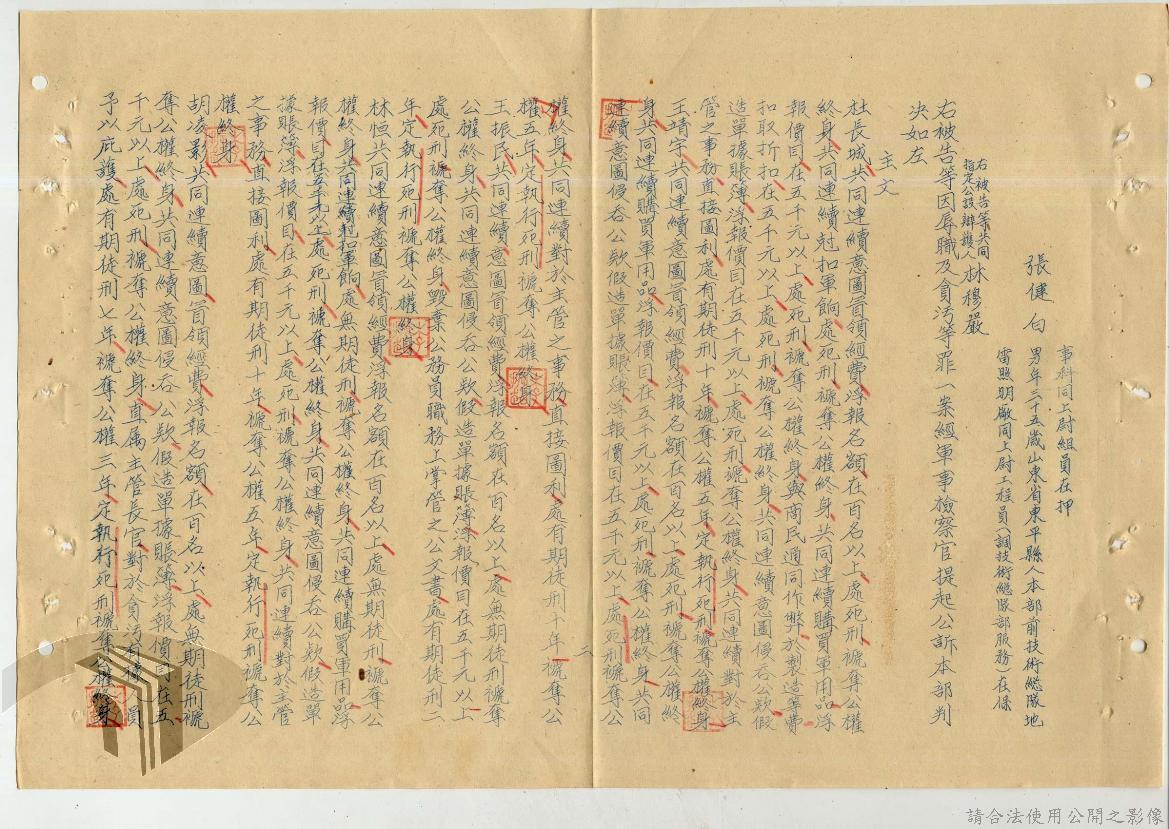 事科同上尉組員在押
張健白 男年三十五歲山東省東平縣人本部前技術總隊地
雷照明廠同上尉工程員(調技術總隊部服務)在保
右被告等共同
指定公設辯護人林穆嚴
右被告等因辱職及貪污等罪一案經軍事檢察官提起公訴本部判
決如左
主文
杜長城共同連續意圖冒領經費浮報名額在百名以上處死刑褫奪公權
終身共同連續尅扣軍餉處死刑褫奪公權終身共同連續購買軍用品浮
報價目在五千元以上處死刑褫奪公權終身與商民通同作弊於製造等費
扣取折扣在五千元以上處死刑褫奪公權終身共同連續意圖侵吞公款假
造單據賬簿浮報價目在五千元以上處死刑褫奪公權終身共同連續對於主
管之事務直接圖利處有期徒刑十年褫奪公權五年定執行死刑褫奪公權終身
王靖宇共同連續意圖冒領經費浮報名額在百名以上處死刑褫奪公權終
身共同連續購買軍用品浮報價目在五千元以上處死刑褫奪公權終身共同
連續意圖侵吞公款假造單據賬簿浮報價目在五千元以上處死刑褫奪公
二
權終身共同連續對於主管之事務直接圖利處有期徒刑十年褫奪公
權五年定執行死刑褫奪公權終身
王振民共同連續意圖冒領經費浮報名額在百名以上處無期徒刑褫奪
公權終身共同連續意圖侵吞公款假造單據賬簿浮報價目在五千元以上
處死刑褫奪公權終身毀棄公務員職務上掌管之公文書處有期徒刑二
年定執行死刑褫奪公權終身
林恒共同連續意圖冒領經費浮報名額在百名以上處無期徒刑褫奪公
權終身共同連續尅扣軍餉處無期徒刑褫奪公權終身共同連續購買軍用品浮
報價目在五千元以上處死刑褫奪公權終身共同連續意圖侵吞公款假造單
據賬簿浮報價目在五千元以上處死刑褫奪公權終身共同連續對於主管
之事務直接圖利處有期徒刑十年褫奪公權五年定執行死刑褫奪公
權終身
胡凌影共同連續意圖冒領經費浮報名額在百名以上處無期徒刑褫
奪公權終身共同連續意圖侵吞公款假造單據賬簿浮報價目在五
千元以上處死刑褫奪公權終身直屬主管長官對於貪污有據人員
予以庇護處有期徒刑七年褫奪公權三年定執行死刑褫奪公權終身
請合法使用公開之影像